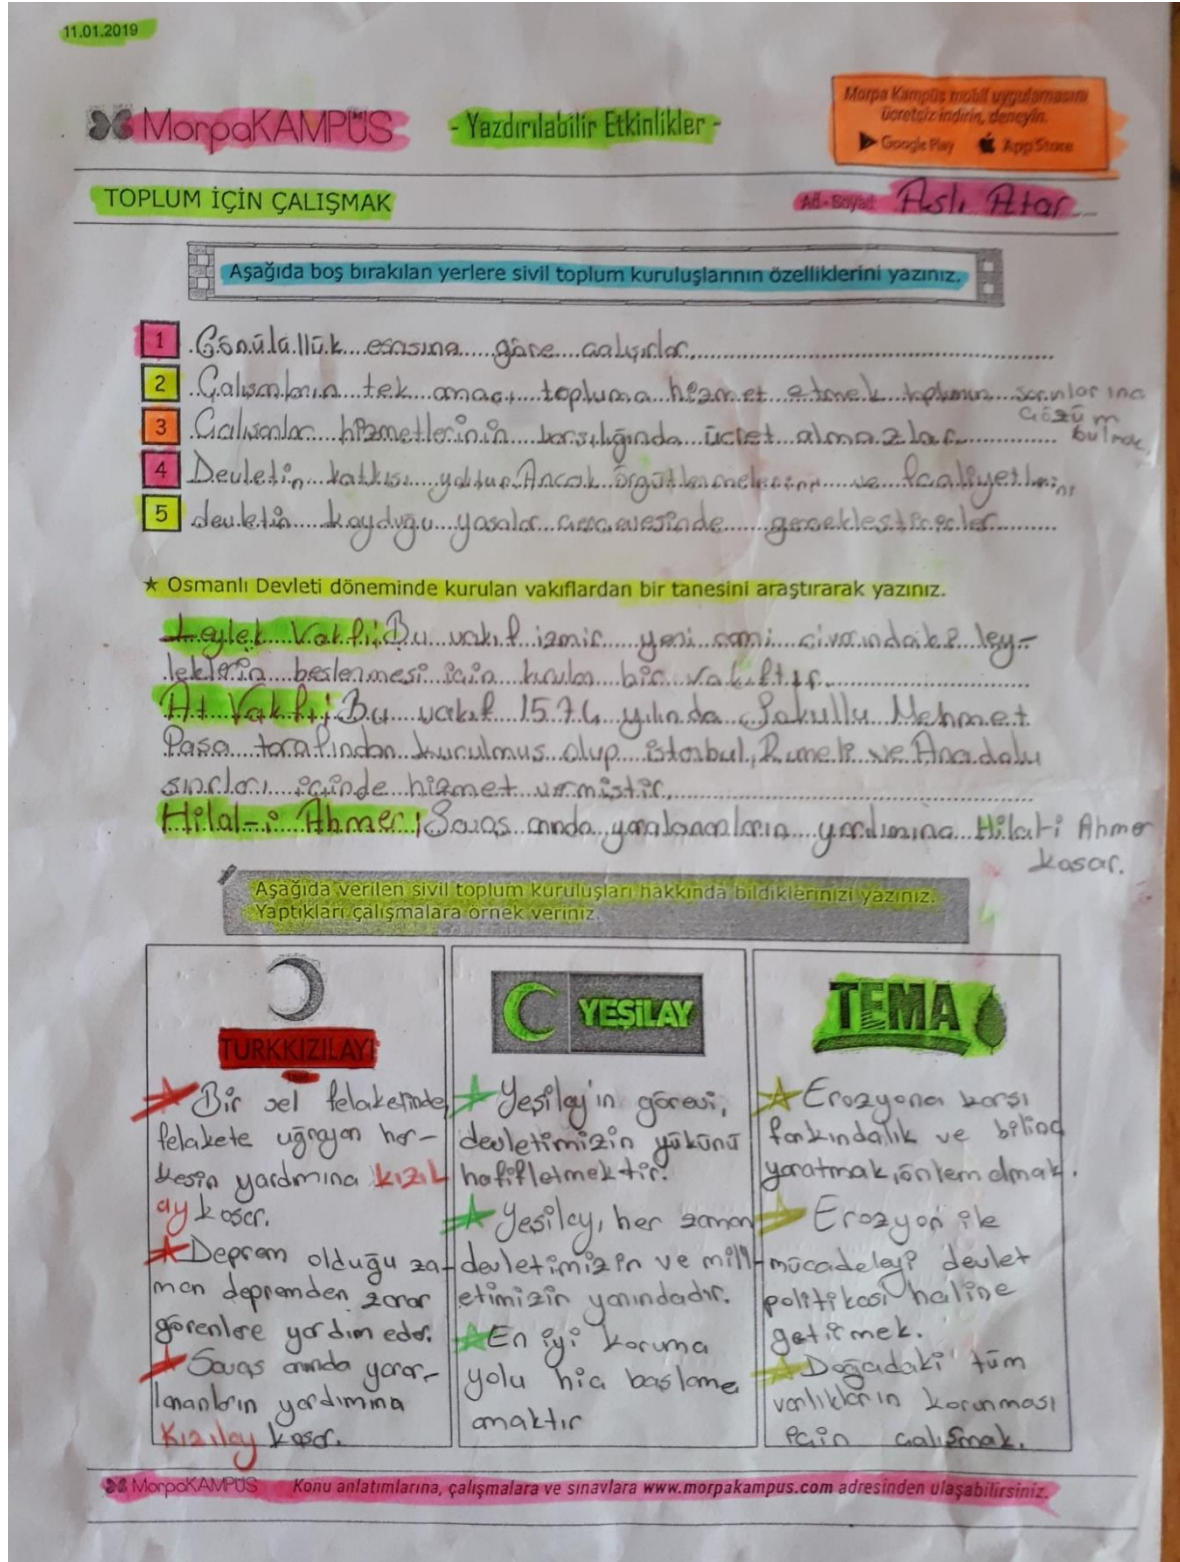 11.01.2019
MorpaKAMPÜS
- Yazdırılabilir Etkinlikler -
Morpa Kampüs mobil uygulamasını
ücretsiz indirin, deneyin.
Google Play App Store
TOPLUM İÇİN ÇALIŞMAK
Ad - Soyad: Aslı Atar
Aşağıda boş bırakılan yerlere sivil toplum kuruluşlarının özelliklerini yazınız.
1 Gönülüllük esasına göre çalışırlar.
2 Çalışanların tek amacı topluma hizmet etmek toplumun sorunlarına
çözüm
bulmak.
3 Çalışanlar hizmetlerinin karşılığında ücret almazlar.
4 Devletin katkısı yoktur. Ancak örgütlenmelerini ve faaliyetlerini
5 devletin koyduğu yasalar çerçevesinde gerçekleştirirler.
★ Osmanlı Devleti döneminde kurulan vakıflardan bir tanesini araştırarak yazınız.
Leylek Vakfı; Bu vakıf izmir yeni cami civarındaki ley-
leklerin beslenmesi için kurulan bir vakıftır.
At Vakfı; Bu vakıf 1574 yılında Sokullu Mehmet
Paşa tarafından kurulmuş olup istanbul, Rumeli ve Anadolu
sınırları içinde hizmet vermiştir.
Hilal-i Ahmer; Savaş anında yaralananların yardımına Hilal-i Ahmer
koşar.
Aşağıda verilen sivil toplum kuruluşları hakkında bildiklerinizi yazınız.
Yaptıkları çalışmalara örnek veriniz.
TÜRKKIZILAYI
Bir sel felaketinde,
felakete uğrayan her-
kesin yardımına kızıl
ay koşar.
Deprem olduğu za-
man depremden zarar
görenlere yardım eder.
Savaş anında yarar-
lananların yardımına
Kızılay koşar.
YEŞİLAY
Yeşilay'ın görevi,
devletimizin yükünü
hafifletmektir.
Yeşilay, her zaman
devletimizin ve mill-
etimizin yanındadır.
En iyi koruma
yolu hiç başlama
amaktır
TEMA
Erozyona karşı
farkındalık ve bilinç
yaratmak, önlem almak.
Erozyon ile
mücadeleyi devlet
politikası haline
getirmek.
Doğadaki tüm
varlıkların korunması
için çalışmak.
MorpaKAMPÜS Konu anlatımlarına, çalışmalara ve sınavlara www.morpakampus.com adresinden ulaşabilirsiniz.